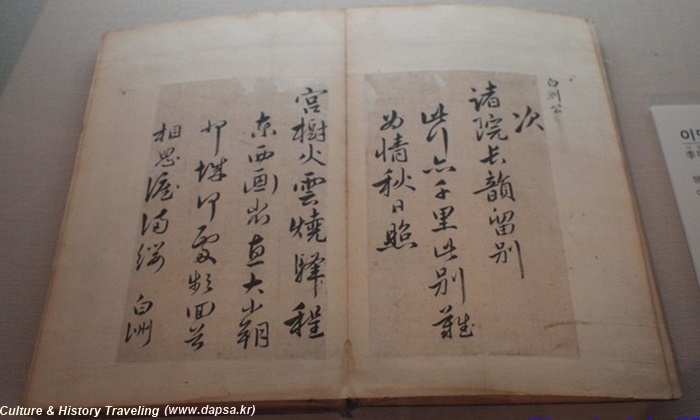 白洲公
次
諸院長韻留別
此行六千里此別難
為情秋日照
宮樹火雲燒驛程
東西画省直大小
城何處頻回首
相思淚滿纓 白洲
이
Culture & History Traveling (www.dapsa.kr)